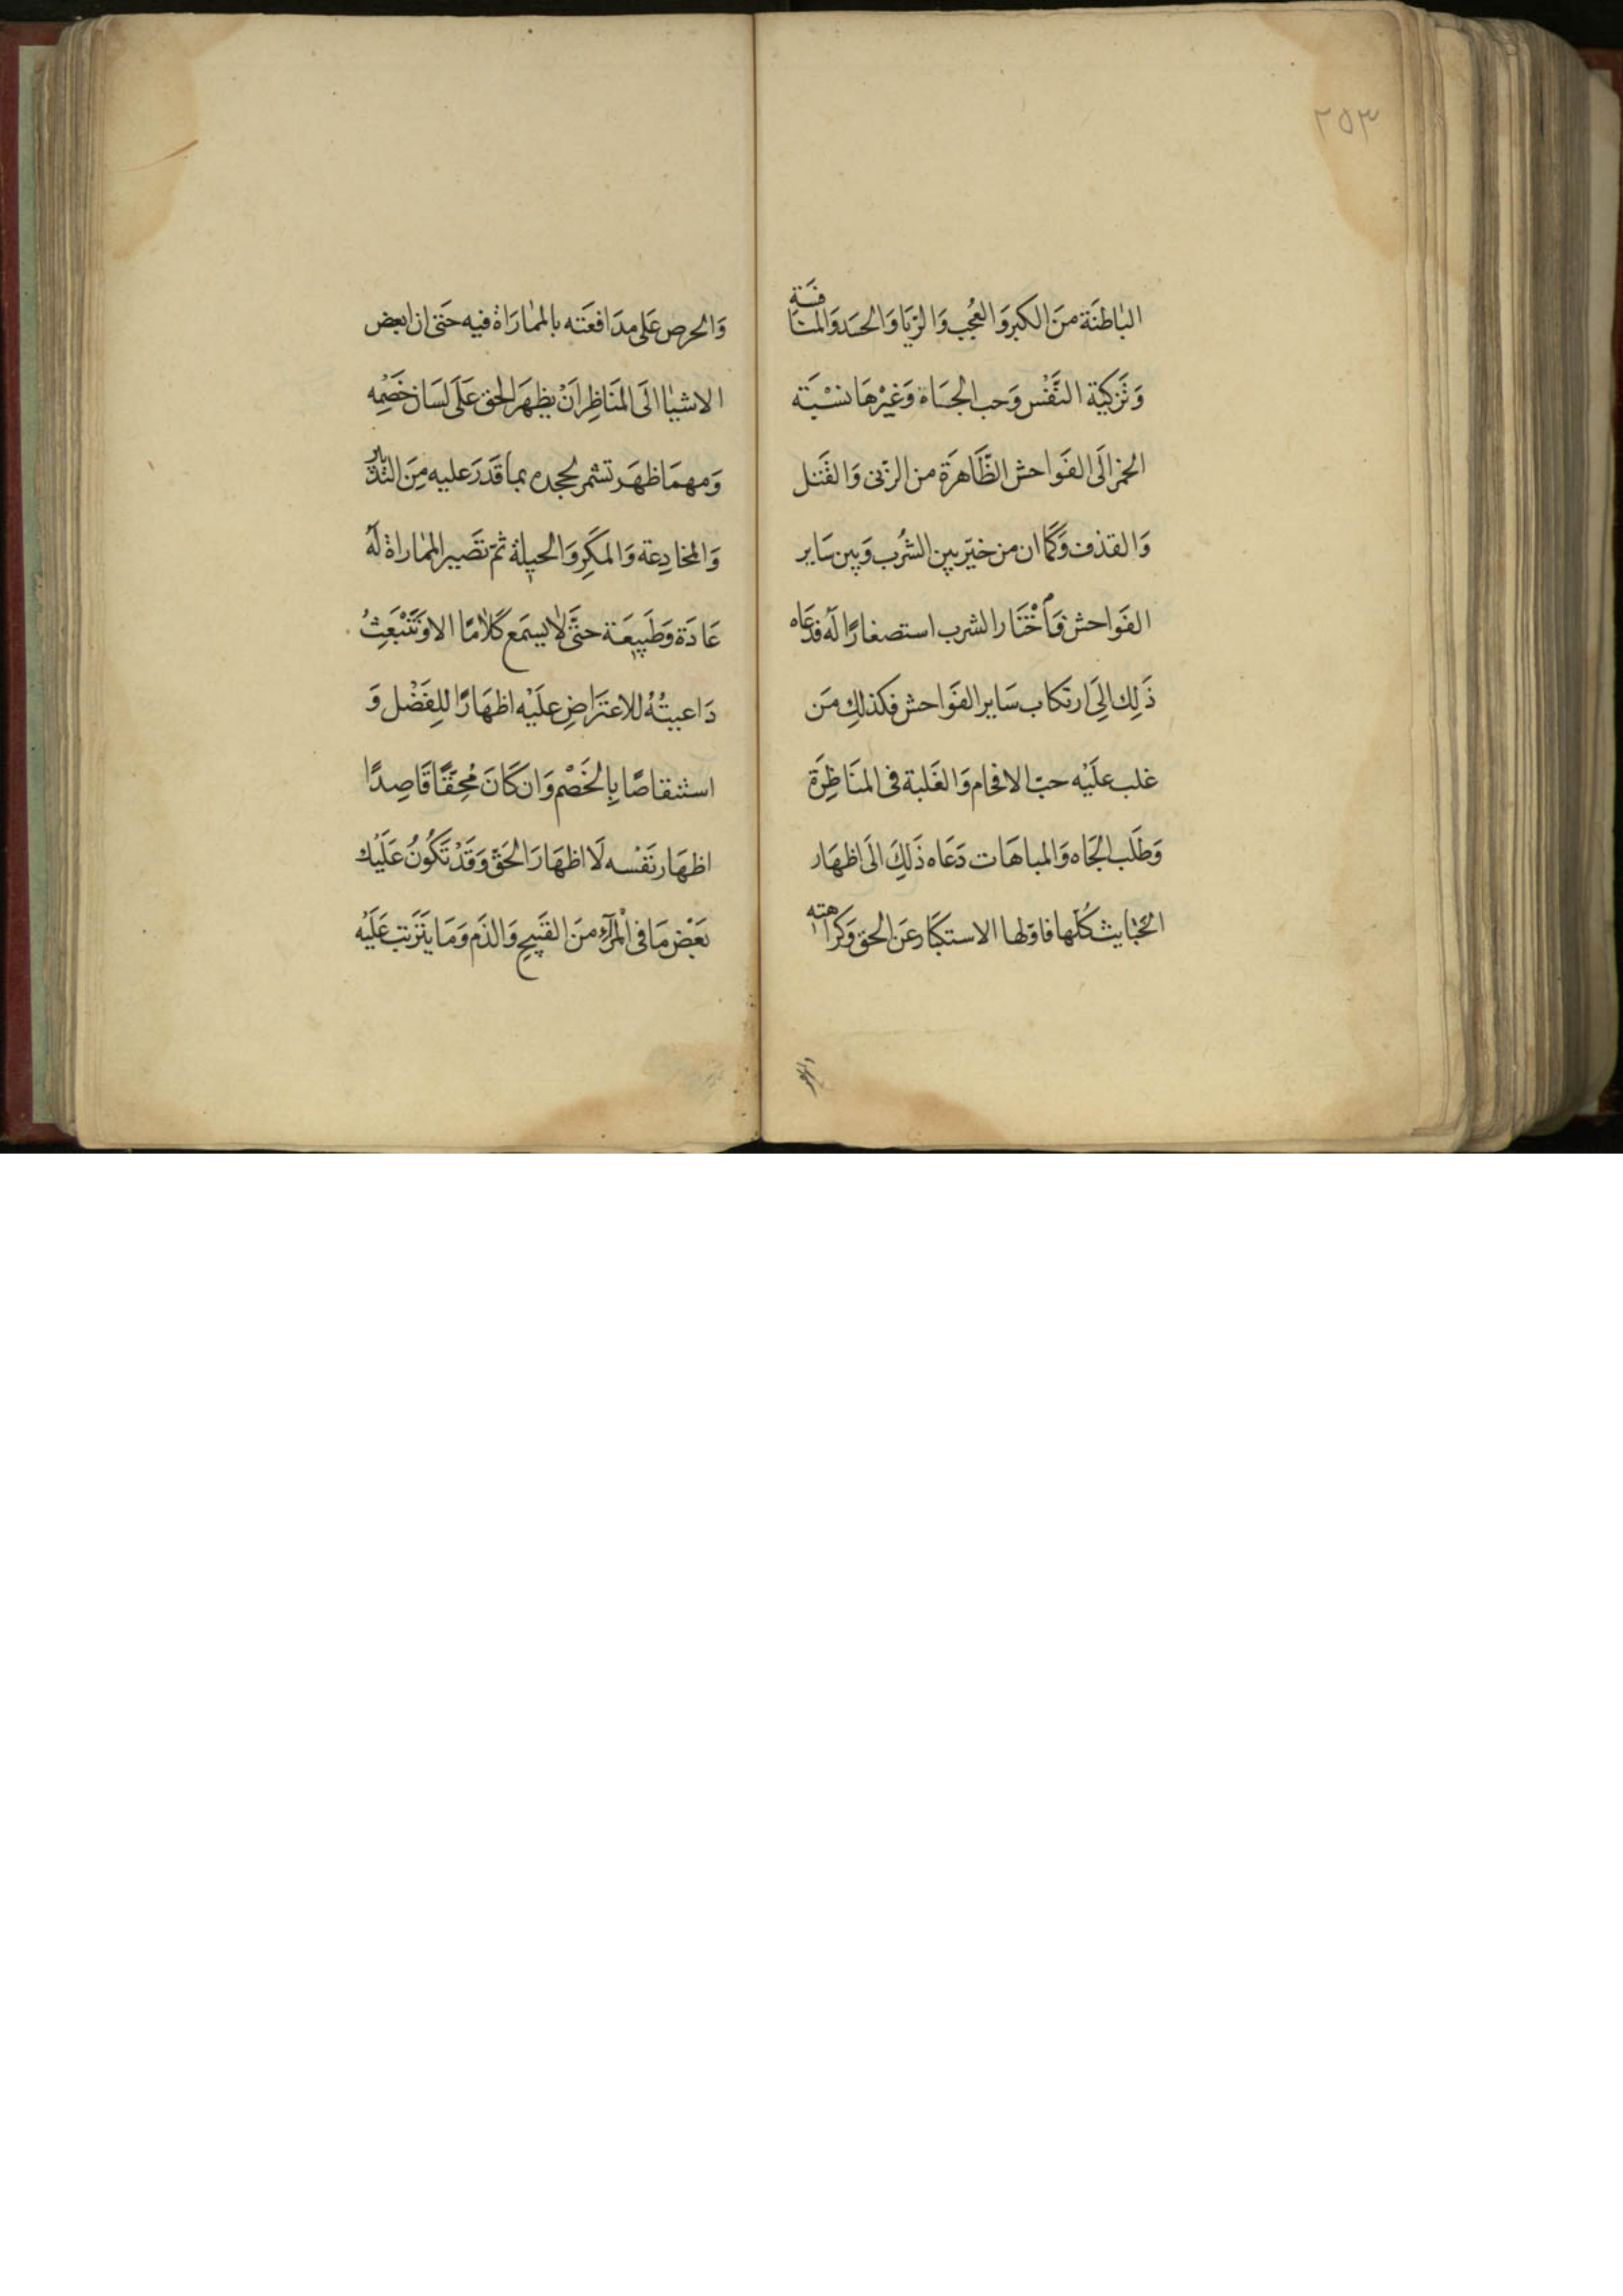 ٢٥٣
البٰاطنَة منَ الكبرِ وَالعُجب وَالرّيَا وَالحسَد وَالمنافسَة
وَتَزكيَة النَّفْس وَحب الجسَاة وَغيْرهَا نسْبَته
الخمْر الَى الفَواحش الظَّاهرَة من الزّنى وَالقَتل
وَالقذف وَكَمَا ان من خيّر بين الشُرب وَبين سَاير
الفَواحش فَأخْتَار الشرب استصغارًا لَه فدعَاه
ذَلِك الِىَ ارتكاب سَاير الفَواحش فكذلكِ مَن
غلب علَيْه حبّ الافحَام وَالغَلبة فى المنَاظِرَة
وَطَلب الجَاه وَالمباهَات دَعَاه ذَلكَِ الَى اظهَار
الخبَايث كُلّهَا فاوّلها الاستكبَار عَن الحق وَكرَاهته
والحر
وَالحرص عَلى مدَافعَته بالممٰارَاة فيه حَتى ان ابعض
الاشيٰا الَى المنَاظِر اَنْ يظهَر الحق عَلَى لسَان خَصْمِه
وَمهمَا ظهَر تشمر لجحده بمٰا قَدَرَ عليه مِنَ
وَالمخادِعة وَالمكَرِ وَالحيلة ثمّ تصَير الممٰاراة لَهُ
عَادَة وَطَبيعَة حتَّى لٰا يسمَع كَلاٰمًا الا وَتَنْبَعِثُ
دَاعيتُهُ للاعتَراضِ علَيْه اظهَارًا للِفَضْل وَ
استنقاصًا بِالخَصْم وَان كَانَ مُحِقّقًا قَاصِدًا
اظهَار نَفْسه لَا اظهَارَ الحَقّ وَقَدْ تَكُونُ عَلَيْك
بَعْض مَا فى الْمرآءِ منَ القَبيحِ وَالذَم وَمَا يتَرتب عَلَيْه